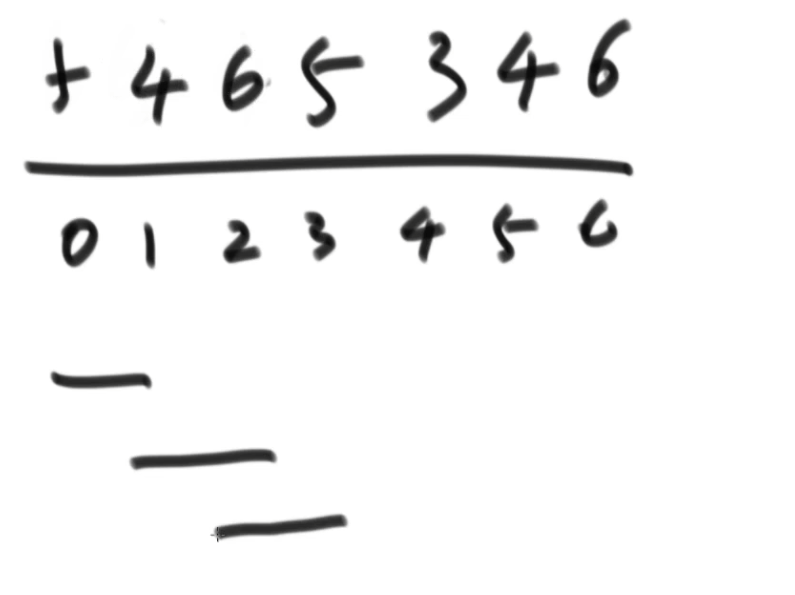 + 4 6 5 3 4 6
0 1 2 3 4 5 6